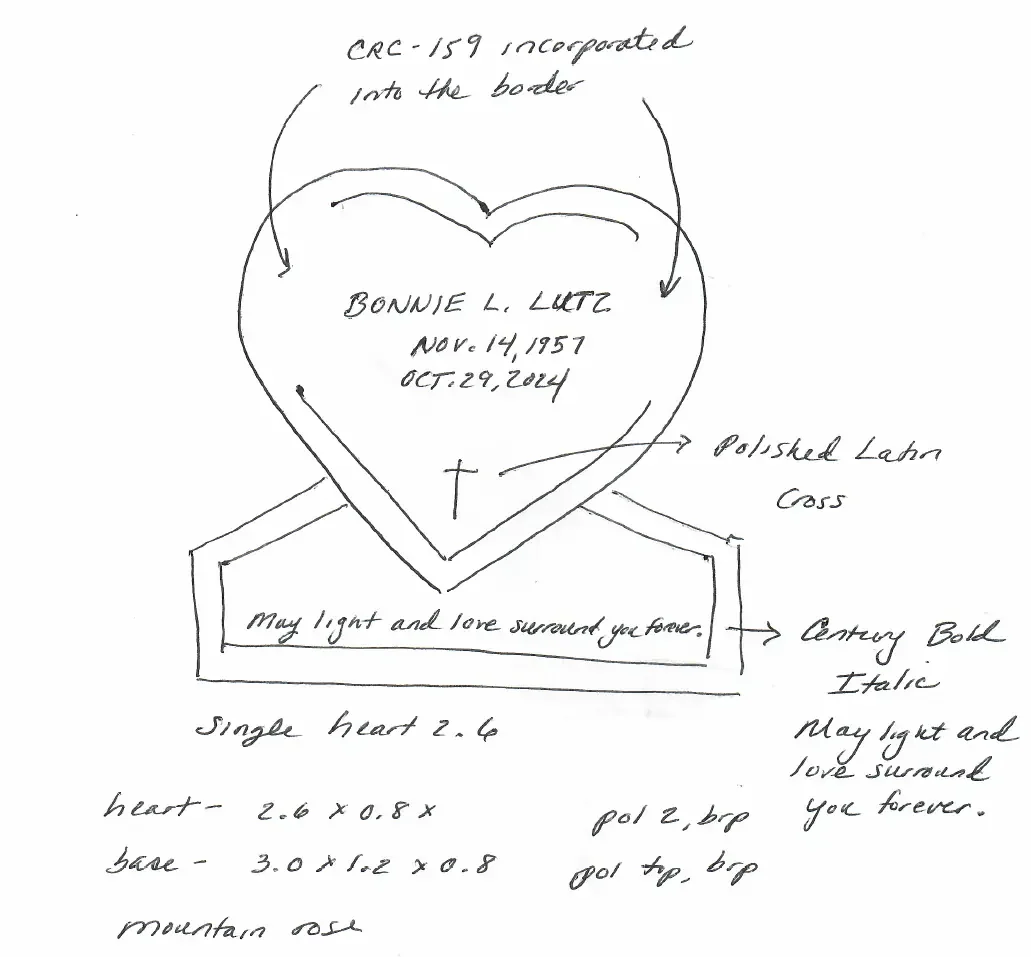 CRC-159 incorporated
into the border
BONNIE L. LUTZ
NOV. 14, 1957
OCT. 29, 2024
Polished Latin
Cross
May light and love surround you forever.
Century Bold
Italic
May light and
love surround
you forever.
Single heart 2.6
heart - 2.6 x 0.8 x pol 2, brp
base - 3.0 x 1.2 x 0.8 pol top, brp
mountain rose